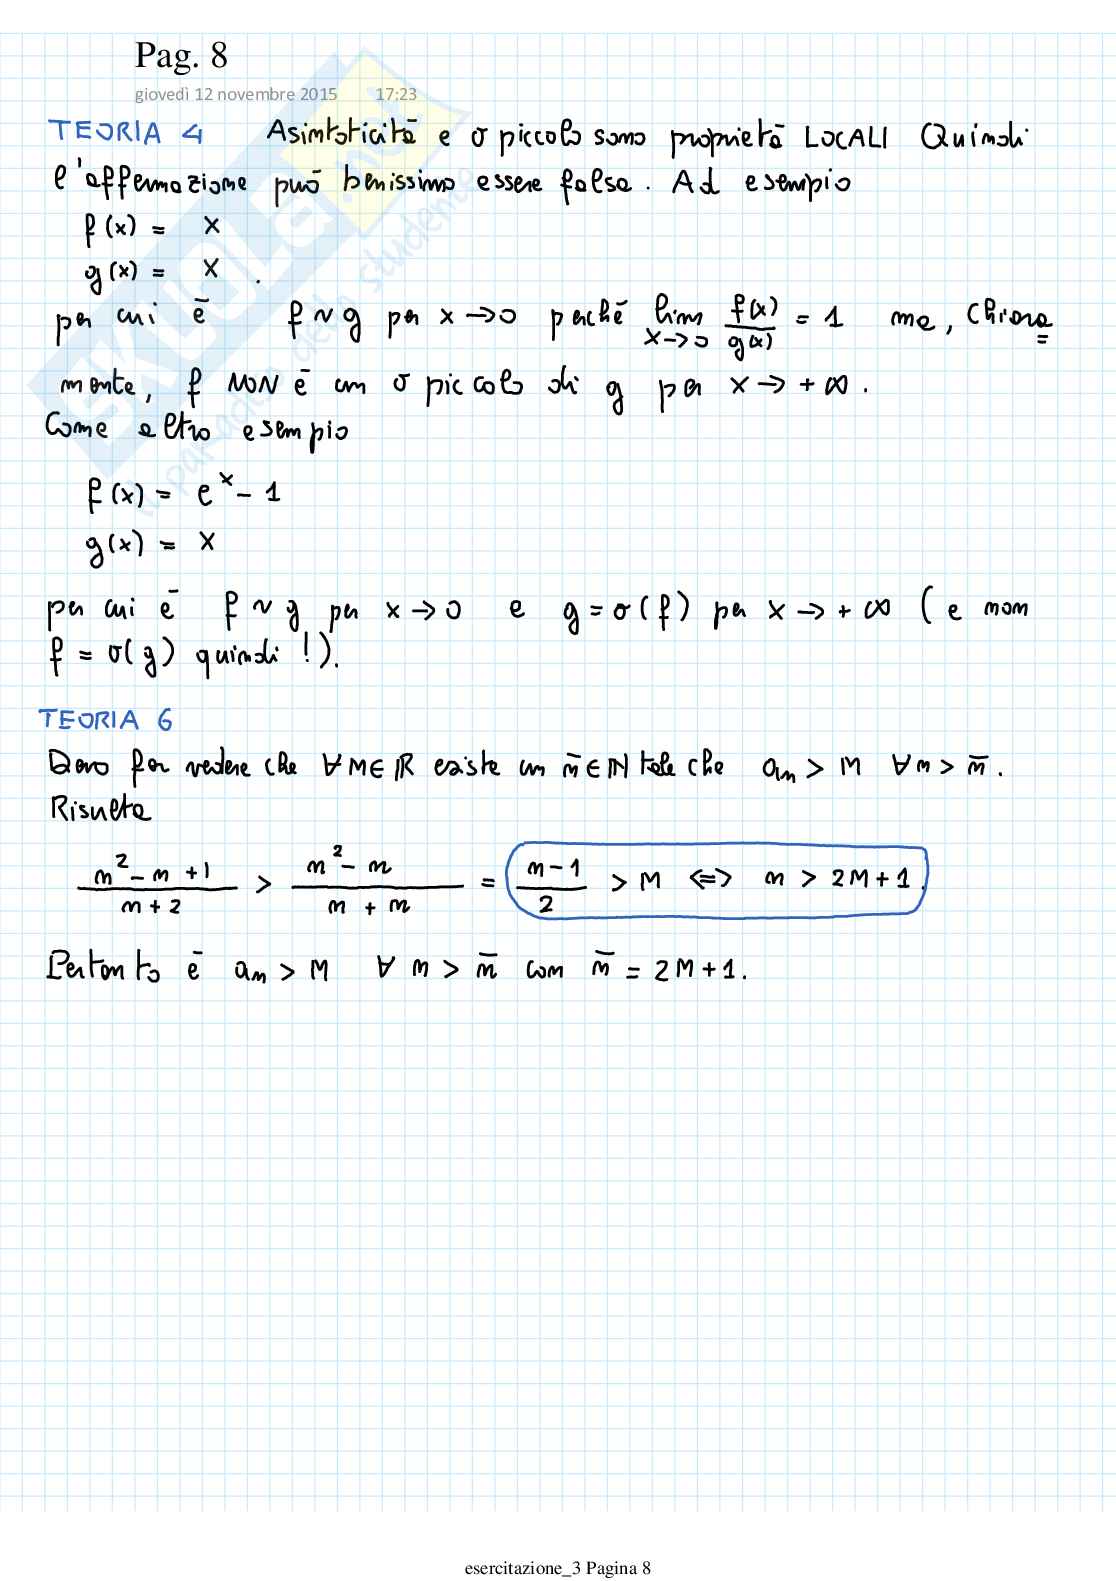 Pag. 8
giovedì 12 novembre 2015 17:23
TEORIA 4 Asintoticità e o piccolo sono proprietà LOCALI Quindi
l'affermazione può benissimo essere falsa. Ad esempio
f(x) = x
g(x) = x.
per cui è f ~ g per x → 0 perché lim x→0 f(x)/g(x) = 1 ma, chiara
mente, f NON è un o piccolo di g per x → +∞.
Come altro esempio
f(x) = e^x - 1
g(x) = x
per cui è f ~ g per x → 0 e g = o(f) per x → +∞ (e non
f = o(g) quindi!).
TEORIA 6
Devo far vedere che ∀M∈ℝ esiste un n̄∈ℕ tale che an > M ∀n > n̄.
Risulta
(n² - n + 1)/(n + 2) > (n² - n)/(n + n) = (n - 1)/2 > M ⟺ n > 2M+1.
Pertanto è an > M ∀ n > n̄ con n̄ = 2M+1.
SKUOLA.net
il paradiso dello studente
esercitazione_3 Pagina 8